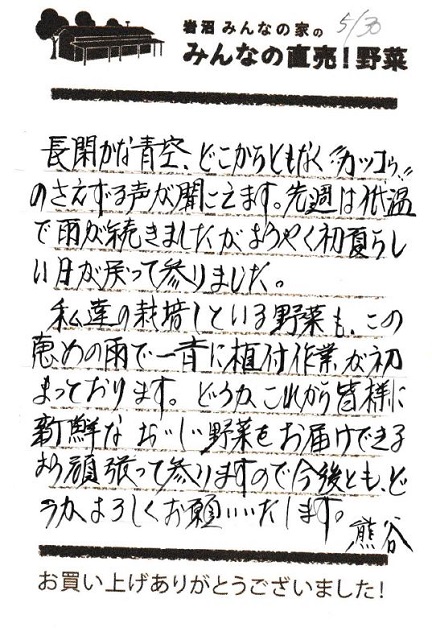 岩沼 みんなの家の
5/30
みんなの直売!野菜
長閑かな青空、どこからともなく〝カッコウ〟
のさえずる声が聞こえます。先週は低温
で雨が続きましたがようやく初夏らし
い日が戻って参りました。
私達の栽培している野菜も、この
恵めの雨で一斉に植付作業が初
まっております。どうかこれから皆様に
新鮮なおいしい野菜をお届けできる
よう頑張って参りますので今後とも、ど
うかよろしくお願いいたします。
熊谷
お買い上げありがとうございました!